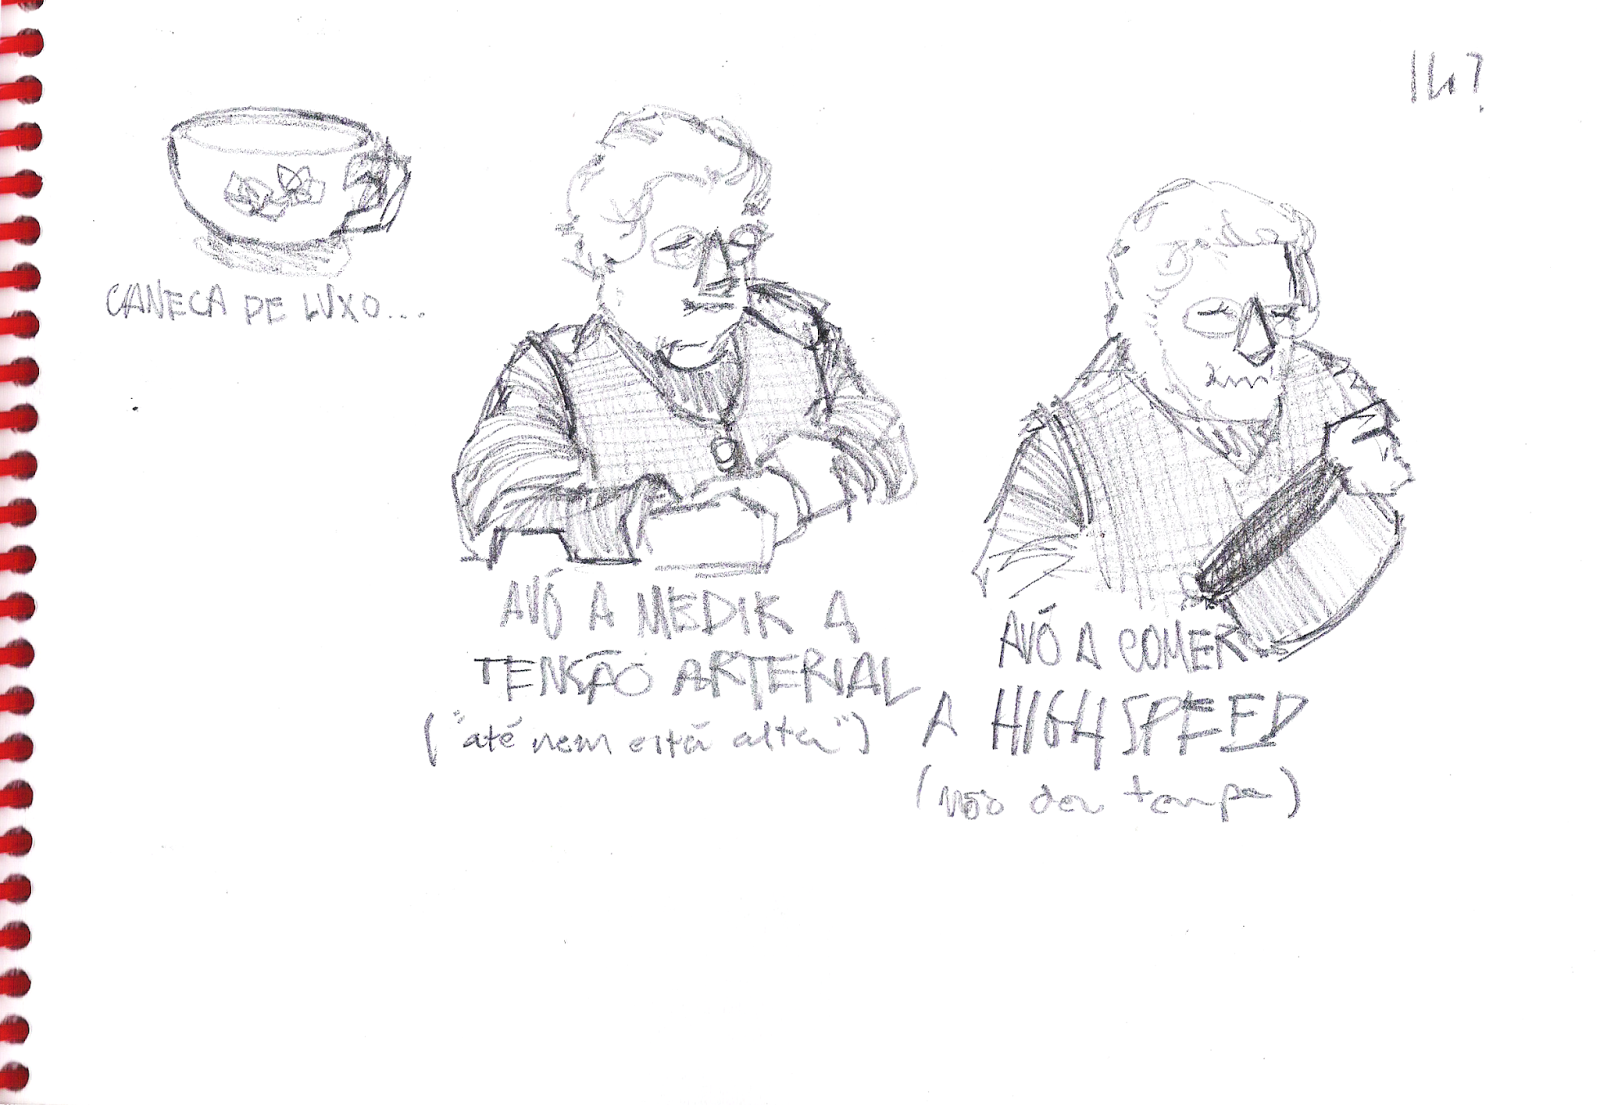 CANECA DE LUXO...
AVÓ A MEDIR A
TENSÃO ARTERIAL
("até nem está alta")
AVÓ A COMER
A HIGH SPEED
(não deu tempo)